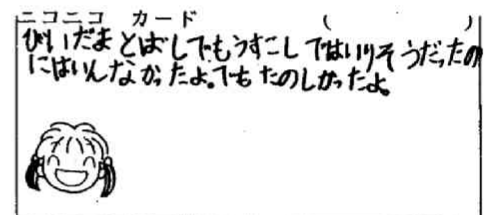 ニコニコ カード ( )
びいだまとばしでもうすこしではいりそうだったの
にはいんなかったよ。でもたのしかったよ。